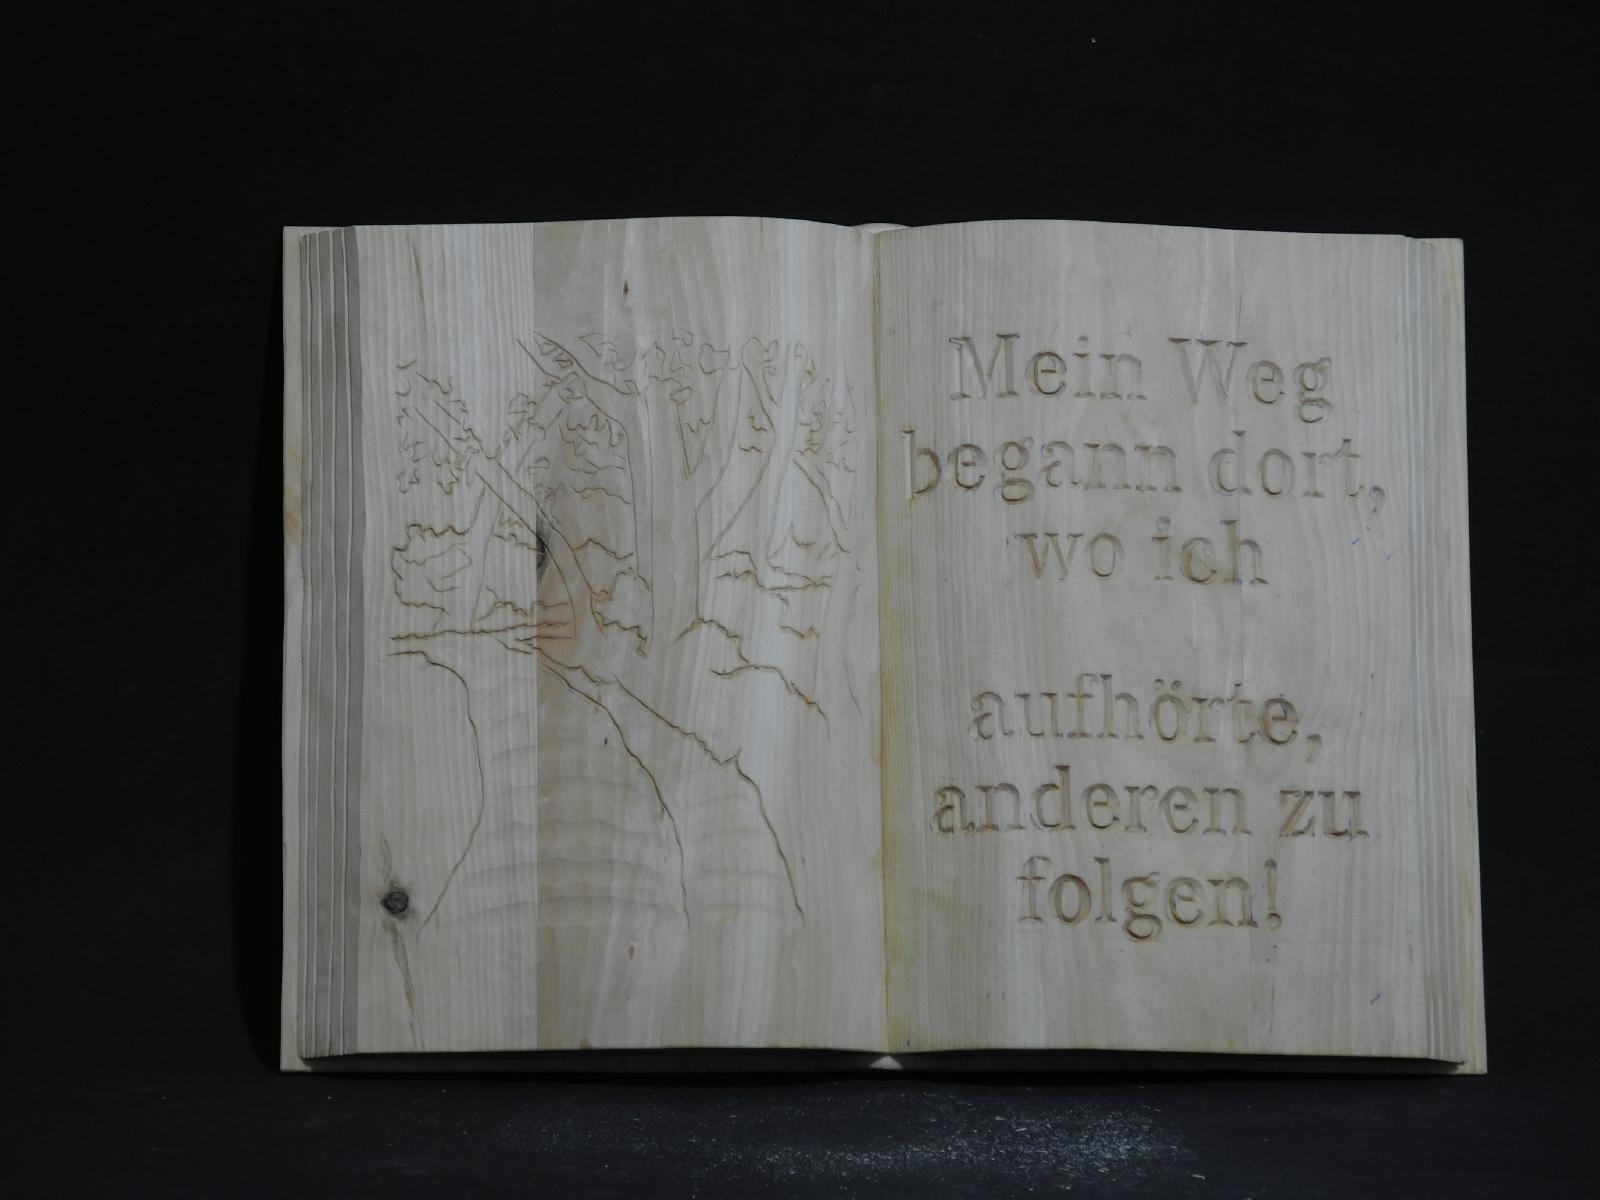 Mein Weg
begann dort,
wo ich
aufhörte,
anderen zu
folgen!